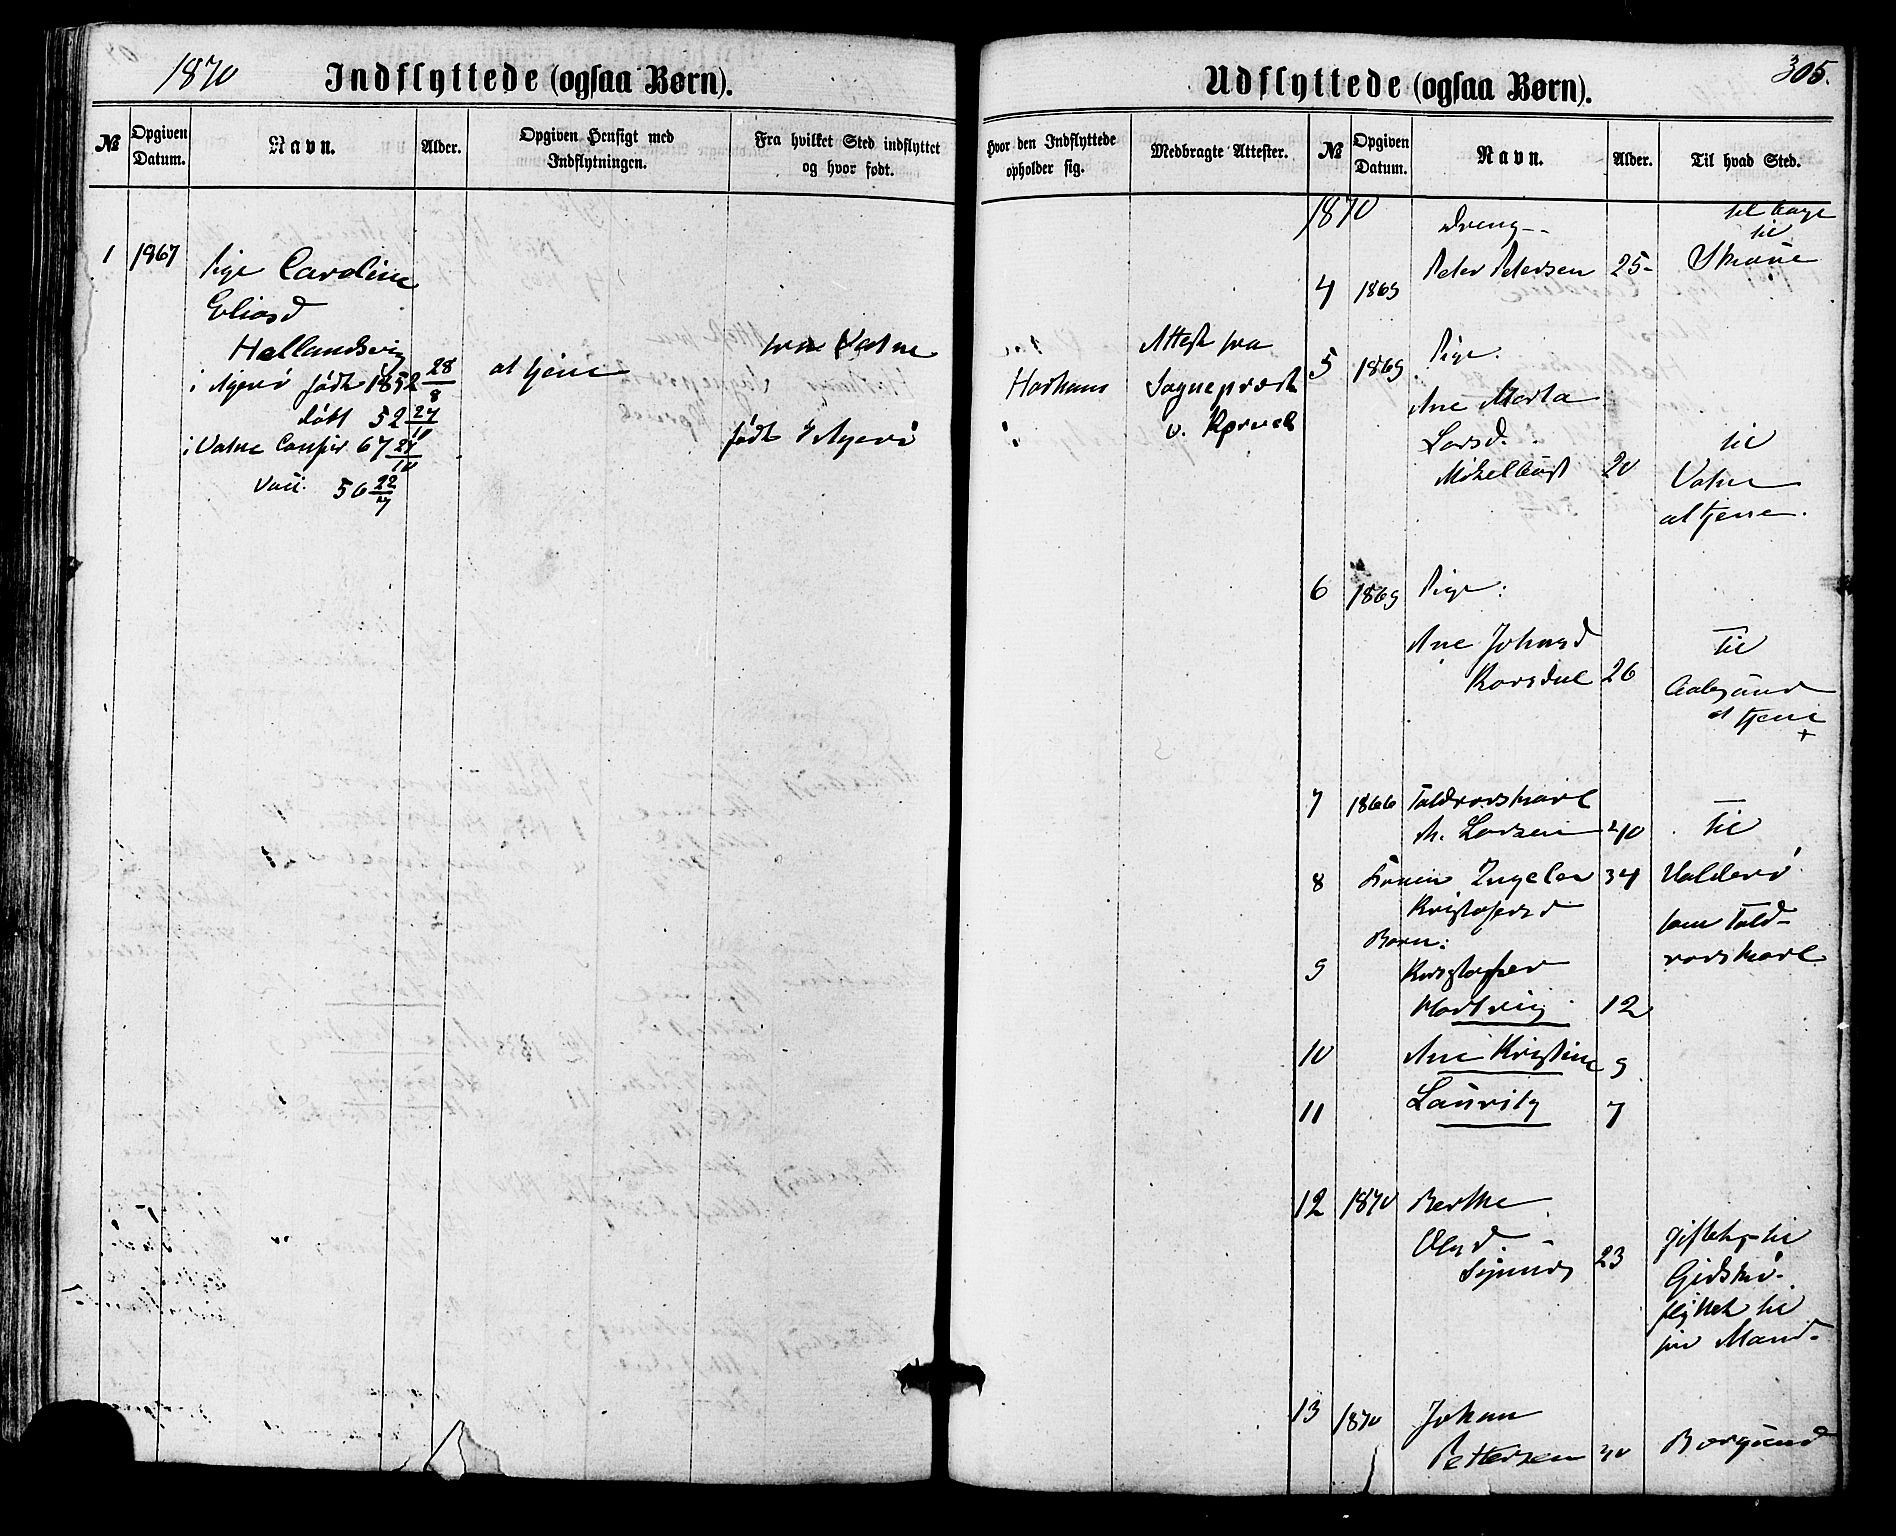 1870
Indflyttede (ogsaa Børn).
№
Opgiven Datum.
Navn.
Alder.
Opgiven Hensigt med Indflytningen.
Fra hvilket Sted indflyttet og hvor født.
1 1867 Pige Caroline
Eliasd
Hellandsvig
i Agerø født 1852 28/8
døbt 52 24/10
i Vatne Confir 67 27/10
Vacc. 56 22/7
at tjene
fra Vatne
født i Agerø
305.
Udflyttede (ogsaa Børn).
Hvor den Indflyttede opholder sig.
Medbragte Attester.
№
Opgiven Datum.
Navn.
Alder.
Til hvad Sted.
Harhams
Attest fra
Sognepræst
v.
1870
Dreng
4 1869 Peter Petersen 25
tilbage
til
5 1869 Pige:
Ane Marta
Larsd.
Mikelbust 20
til
Vatne
at tjene.
6 1869 Pige:
Ane Johnsd
Korsdal 26
til
Aalesund
at tjene
+
7 1866 Toldrorskarl
M. Larsen 40
til
8 Konen Ingeler 34
Kristofersd
Valderø
som Told-
rorskarl
Børn:
9 Kristoffer
Hartvig 12
10 Ane Kristine 9
11 Lauritz 7
12 1870 Berthe
Olsd.
23
giftet til
Gidskø.
flyttet til
sin Mand.
13 1870 Johan
Pettersen 30
Borgund